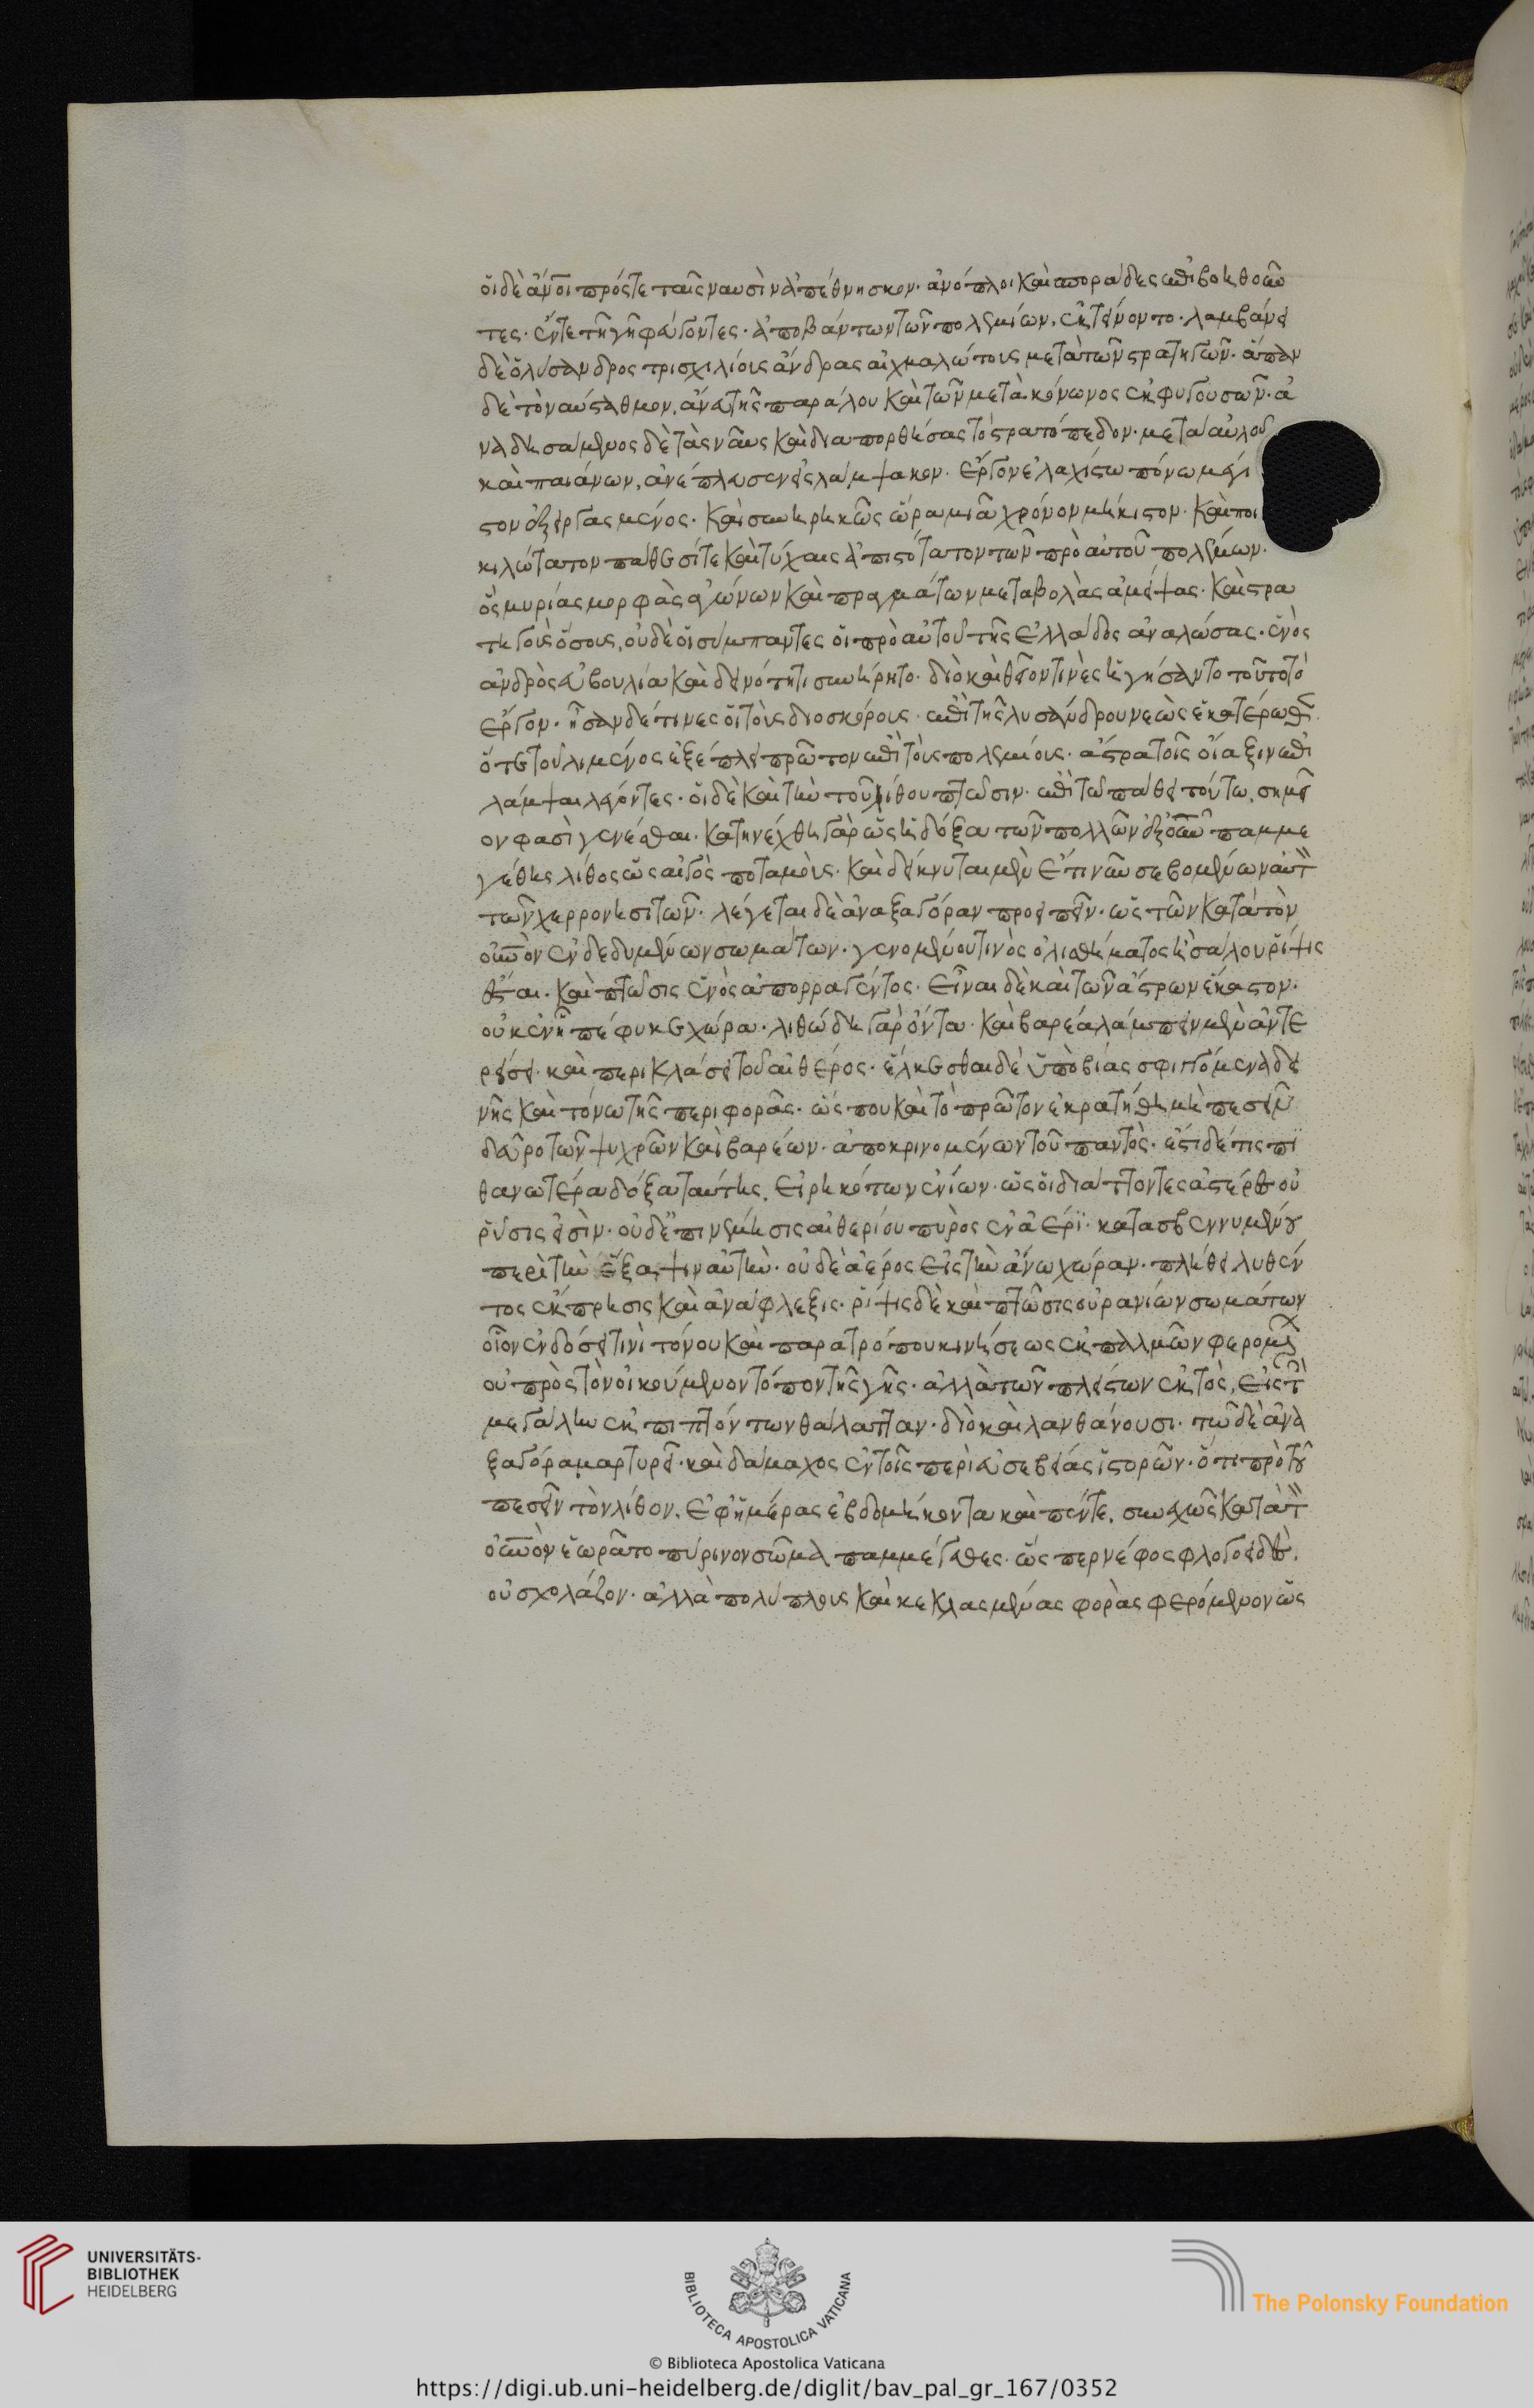 οἱ δὲ ἄνοι πρός τε ταῖς ναυσὶν ἀπέθνησκον· ἄνοπλοι καὶ σποράδες ἐπιβοηθοῦν
τες· ἔν τε τῇ γῇ φεύγοντες· ἀποβάντων τῶν πολεμίων, ἐκτείνοντο· λαμβάνει
δὲ ὁ λύσανδρος τρισχιλίους ἄνδρας αἰχμαλώτους μετὰ τῶν στρατηγῶν· ἅπαν
δὲ τὸ ναύσταθμον, ἄνευ τῆς παράλου καὶ τῶν μετὰ κόνωνος ἐκφυγουσῶν· ἀ
ναδησάμενος δὲ τὰς ναῦς καὶ διαπορθήσας τὸ στρατόπεδον· μετὰ αὐλοῦ
καὶ παιάνων, ἀνέπλευσεν εἰς λάμψακον· ἔργον ἐλαχίστω πόνω μέγι
στον ἐξειργασμένος· καὶ συνηρηκὼς ὥρα μιᾶ χρόνον μήκιστον· καὶ ποι
κιλώτατον πάθεσί τε καὶ τύχαις ἀπιστότατον τῶν πρὸ αὐτοῦ πολέμων·
ὃς μυρίας μορφὰς ἀγώνων καὶ πραγμάτων μεταβολὰς ἀμείψας· καὶ στρα
τηγοὺς ὅσους, οὐδὲ οἱ σύμπαντες οἱ πρὸ αὐτοῦ τῆς ἑλλάδος ἀναλώσας· ἑνὸς
ἀνδρὸς εὐβουλία καὶ δεινότητι συνήρητο· διὸ καὶ θεῖόν τινες ἡγήσαντο τοῦτο τὸ
ἔργον· ἦσαν δέ τινες οἱ τοὺς διοσκόρους· ἐπὶ τῆς λυσάνδρου νεὼς ἑκατέρωθεν
ὅτε τοῦ λιμένος ἐξέπλει πρῶτον ἐπὶ τοὺς πολεμίους· ἄστρα τοῖς οἴαξιν ἐπι
λάμψαι λέγοντες· οἱ δὲ καὶ τὴν τοῦ λίθου πτῶσιν· ἐπὶ τῶ πάθει τούτω, σημεῖ
όν φασι γενέσθαι· κατηνέχθη γὰρ ὡς ἡ δόξα τῶν πολλῶν ἐξ οὐνοῦ παμμε
γέθης λίθος ὡς αἰγὸς ποταμούς· καὶ δείκνυται μὲν ἔτι νῦν σεβομένων αὐτ
τῶν χερρονησιτῶν· λέγεται δὲ ἀναξαγόραν προειπεῖν· ὡς τῶν κατὰ τὸν
οὐνὸν ἐνδεδεμένων σωμάτων· γενομένου τινὸς ὀλισθήματος ἢ σάλου ῥίψις
ἔσται· καὶ πτῶσις ἑνὸς ἀπορραγέντος· εἶναι δὲ καὶ τῶν ἄστρων ἕκαστον·
οὐκ ἐν ᾗ πέφυκε χώρα· λιθώδη γὰρ ὄντα· καὶ βαρέα λάμπειν μὲν ἀντε
ρείσει· καὶ περικλάσει τοῦ αἰθέρος· ἕλκεσθαι δὲ ὑπὸ βίας σφιγγόμενα δί
νης καὶ τόνω τῆς περιφορᾶς· ὥς που καὶ τὸ πρῶτον ἐκρατήθη μὴ πεσεῖν
δεῦρο τῶν ψυχρῶν καὶ βαρέων· ἀποκρινομένων τοῦ παντός· ἔστι δέ τις πι
θανωτέρα δόξα ταύτης, εἰρηκότων ἐνίων· ὡς οἱ διάττοντες ἀστέρες οὐ
ῥύσις εἰσὶν· οὐδ' ἐπινέμησις αἰθερίου πυρὸς ἐν ἀέρι· κατασβεννυμένου
περὶ τὴν ἔξαψιν αὐτὴν· οὐδὲ ἀέρος εἰς τὴν ἄνω χώραν· πλήθει λυθέν
τος ἔκπρησις καὶ ἀνάφλεξις· ῥίψις δὲ καὶ πτῶσις οὐρανίων σωμάτων
οἷον ἐνδόσει τινὶ τόνου καὶ παρατρόπου κινήσεως ἐκπαλμῶν φερομέν
οὐ πρὸς τὸν οἰκούμενον τόπον τῆς γῆς· ἀλλὰ τῶν πλείστων ἐκτὸς, εἰς τὴν
μεγάλην ἐκπιπτόντων θάλατταν· διὸ καὶ λανθάνουσι· τῶ δὲ ἀνα
ξαγόρα μαρτυρεῖ· καὶ δαίμαχος ἐν τοῖς περὶ εὐσεβείας ἱστορῶν· ὅτι πρὸ τοῦ
πεσεῖν τὸν λίθον, ἐφ' ἡμέρας ἑβδομήκοντα καὶ πέντε, συνεχῶς κατὰ τὸν
οὐνὸν ἑωρᾶτο πύρινον σῶμα παμμέγεθες· ὥσπερ νέφος φλογοειδὲς,
οὐ σχολάζον· ἀλλὰ πολυπλόκους καὶ κεκλασμένας φορὰς φερόμενον ὡς
UNIVERSITÄTS-
BIBLIOTHEK
HEIDELBERG
BIBLIOTECA APOSTOLICA VATICANA
The Polonsky Foundation
© Biblioteca Apostolica Vaticana
https://digi.ub.uni-heidelberg.de/diglit/bav_pal_gr_167/0352